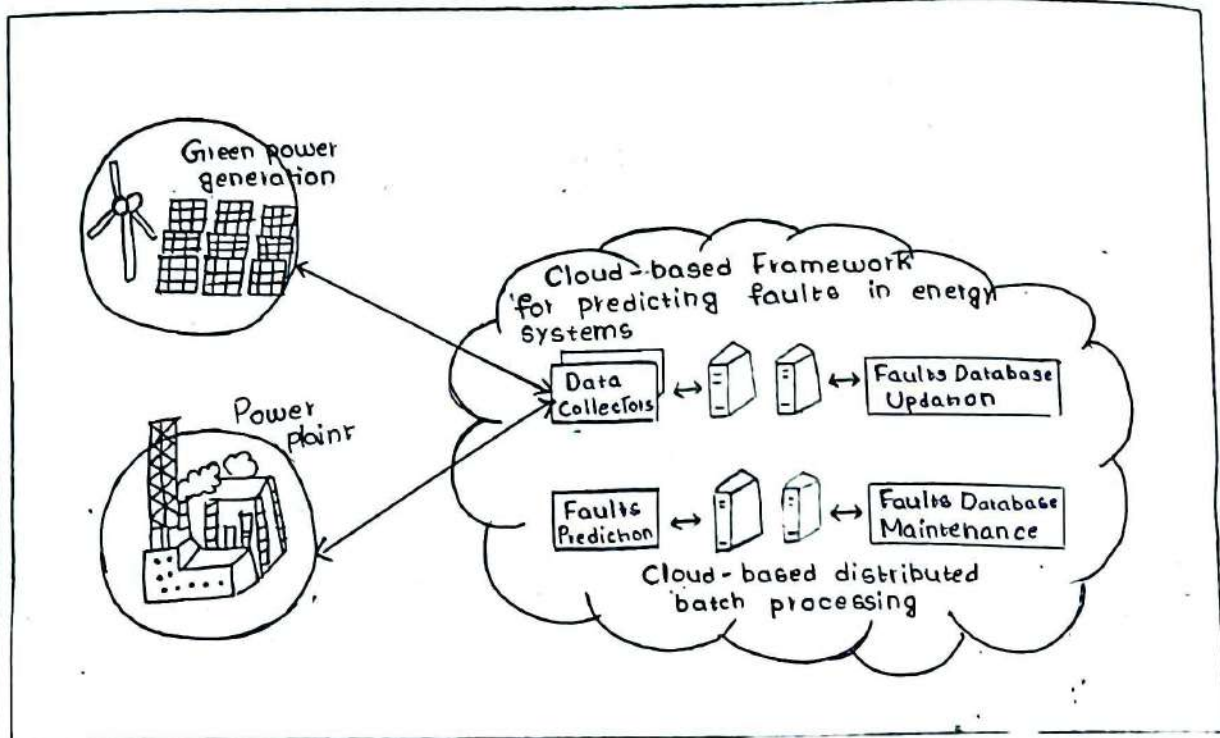 Green power
generation
Cloud-based Framework
for predicting faults in energy
systems
Data
Collectors
Faults Database
Updation
Power
plaint
Faults
Prediction
Faults Database
Maintenance
Cloud-based distributed
batch processing